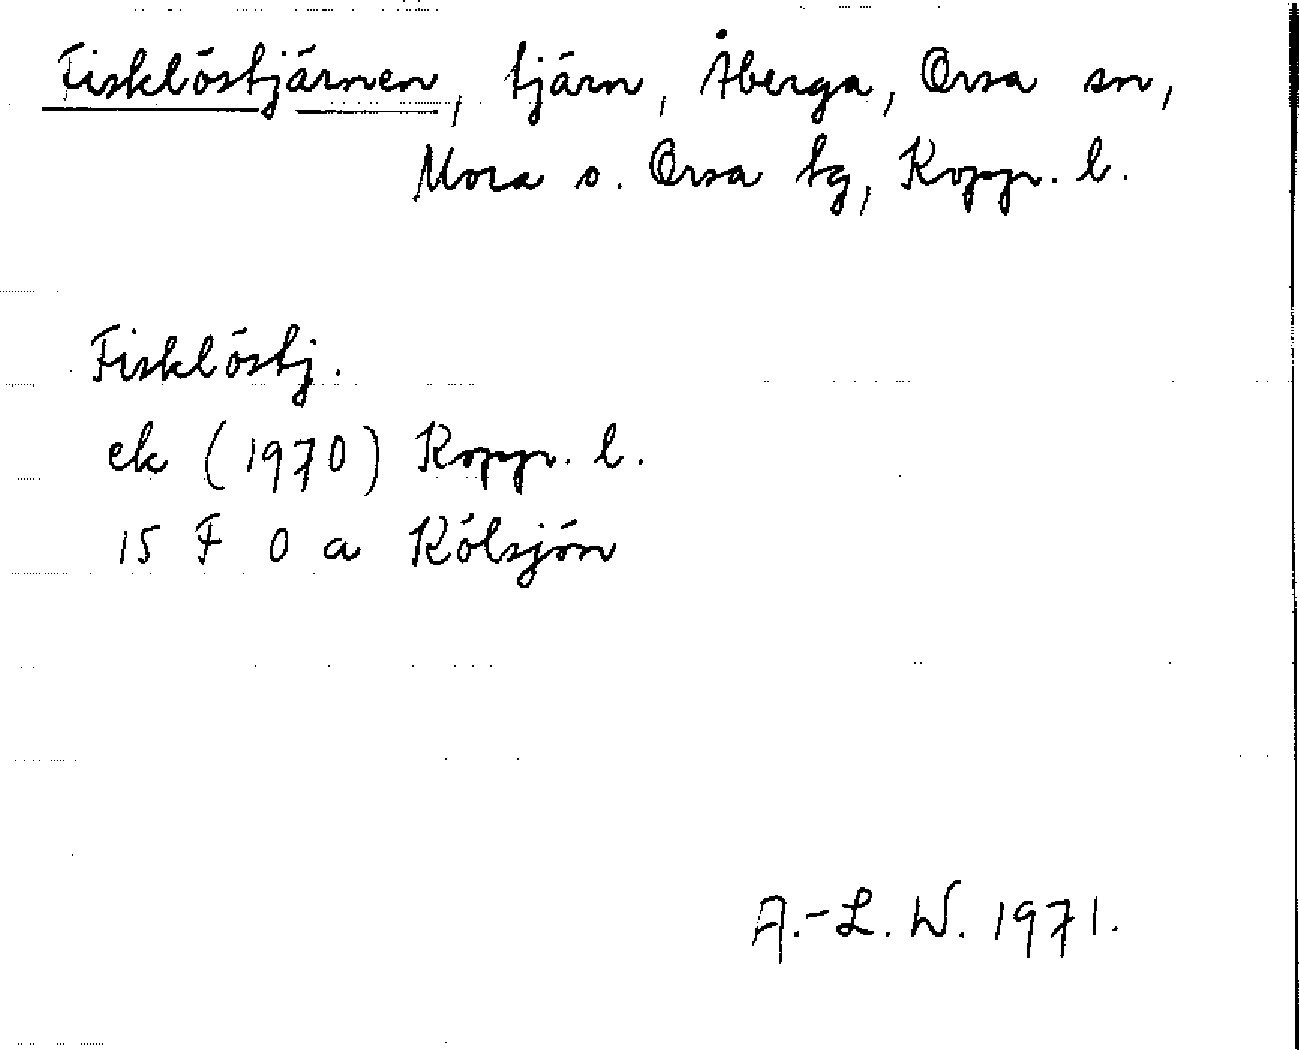 Fisklöstjärnen, tjärn, Åberga, Orsa sn,
Mora o. Orsa tg, Koppr. l.
Fisklöstj.
ek (1970) Koppr. l.
15 F 0 a Kölsjön
A.-L. W. 1971.